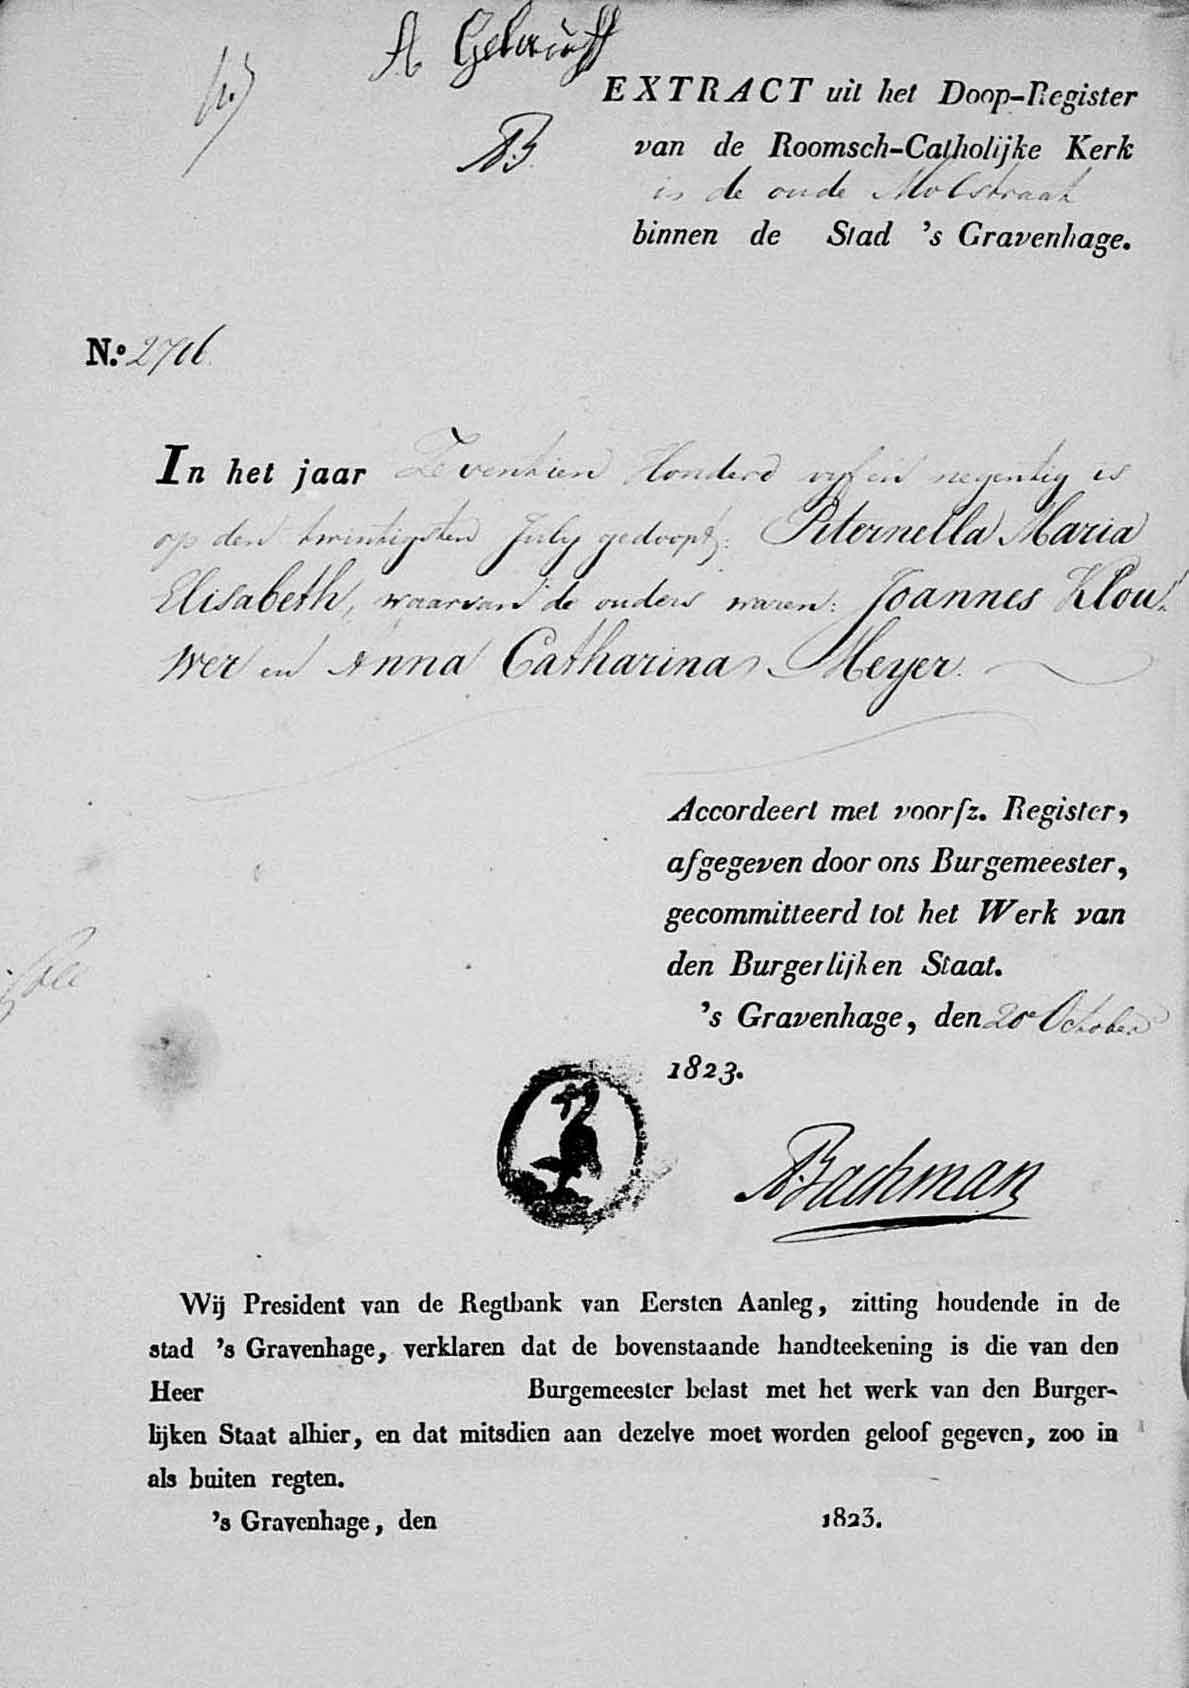 EXTRACT uit het Doop-Register
van de Roomsch-Catholijke Kerk
in de oude Molstraat
binnen de Stad 's Gravenhage.
N.o
In het jaar Zeventien Honderd vyf en negentig is
op den twintigsten July gedoopt: Piternella Maria
Elisabeth, waarvan de ouders waren: Joannes Klou-
wer en Anna Catharina Meyer.
Accordeert met voorsz. Register,
afgegeven door ons Burgemeester,
gecommitteerd tot het Werk van
den Burgerlijken Staat.
's Gravenhage, den 20e October
1823.
Bachman
Wij President van de Regtbank van Eersten Aanleg, zitting houdende in de
stad 's Gravenhage, verklaren dat de bovenstaande handteekening is die van den
Heer Burgemeester belast met het werk van den Burger-
lijken Staat alhier, en dat mitsdien aan dezelve moet worden geloof gegeven, zoo in
als buiten regten.
's Gravenhage, den 1823.